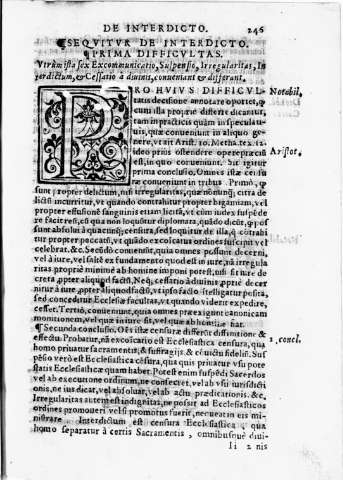 DE INTERDICTO. 246
SEQVITVR DE INTERDICTO.
PRIMA DIFFICVLTAS.
Vtrum ista sex Excommunicatio, Suspensio, Irregularitas, In
terdictum, & Cessatio à diuinis, conueniant & differant.
PRO HVIVS DIFFICVL Notabil.
tatis decisione annotare oportet, q
cum illa propriè differre dicantur,
tam in practicis quàm in speculati
uis, quæ conueniunt in aliquo ge-
nere, vt ait Arist. 10. Metha. tex. 12.
ideo prius ostendere operæpreciũ Aristot.
est, in quo conueniant. Sit igitur
prima conclusio. Omnes istæ cẽsu
ræ conueniunt in tribus. Primò, q
sunt propter delictum, nisi irregularitas, quæ nonnunq̃ citra de
lictũ incurritur, vt quando contrahitur propter bigamiam, vel
propter effusionẽ sanguinis etiam licitã, vt cùm iudex suspẽde
re facit reos,
sunt absolui à quacunq; censura, sed loquitur de illa, q̃ cõtrahi
tur propter peccatũ, vt quado excõicatus ordines suscipit vel
celebrat. &c. Secũdò conueniũt, quia omnes possunt decerni,
vel à iure, vel saltẽ ex fundamento quod est in iure,
ritas propriè minimè ab homine imponi potest, nisi sit iure de
creta propter aliquod factũ,
nitur à iure,
sed conceditur Ecclesiæ facultas, vt quando videnit expedire,
cesset. Tertiò, conueniunt, quia omnes præexigunt canonicam
monitionem, vel quæ in iure sit, vel quæ ab homine fiat.
¶ Secunda conclusio. Oẽs istæ censuræ differũt diffinitione & 2. concl.
effectu. Probatur, nã excõicatio est Ecclesiastica censura, qua
homo priuatur sacramentis, & suffragijs, & cõuictu fidelium. Sus
pẽsio verò est Ecclesiastica cẽsura, qua quis priuatur vsu pote
statis Ecclesiasticæ quam habet. Potest enim suspẽdi Sacerdos
vel ab executione ordinum, ne consecret, vel ab vsu iurisdicti
onis, ne ius dicat, vel absoluat, vel ab actu prædicationis. &c.
Irregularitas autem est indignitas, ne possit ad Ecclesiasticos
ordines promoueri vel si promotus fuerit, nequeat in eis mi-
nistrare. Interdictum est censura Ecclesiastica, qua
homo separatur à certis Sacramentis, omnibusque diui-
Ii 2 nis